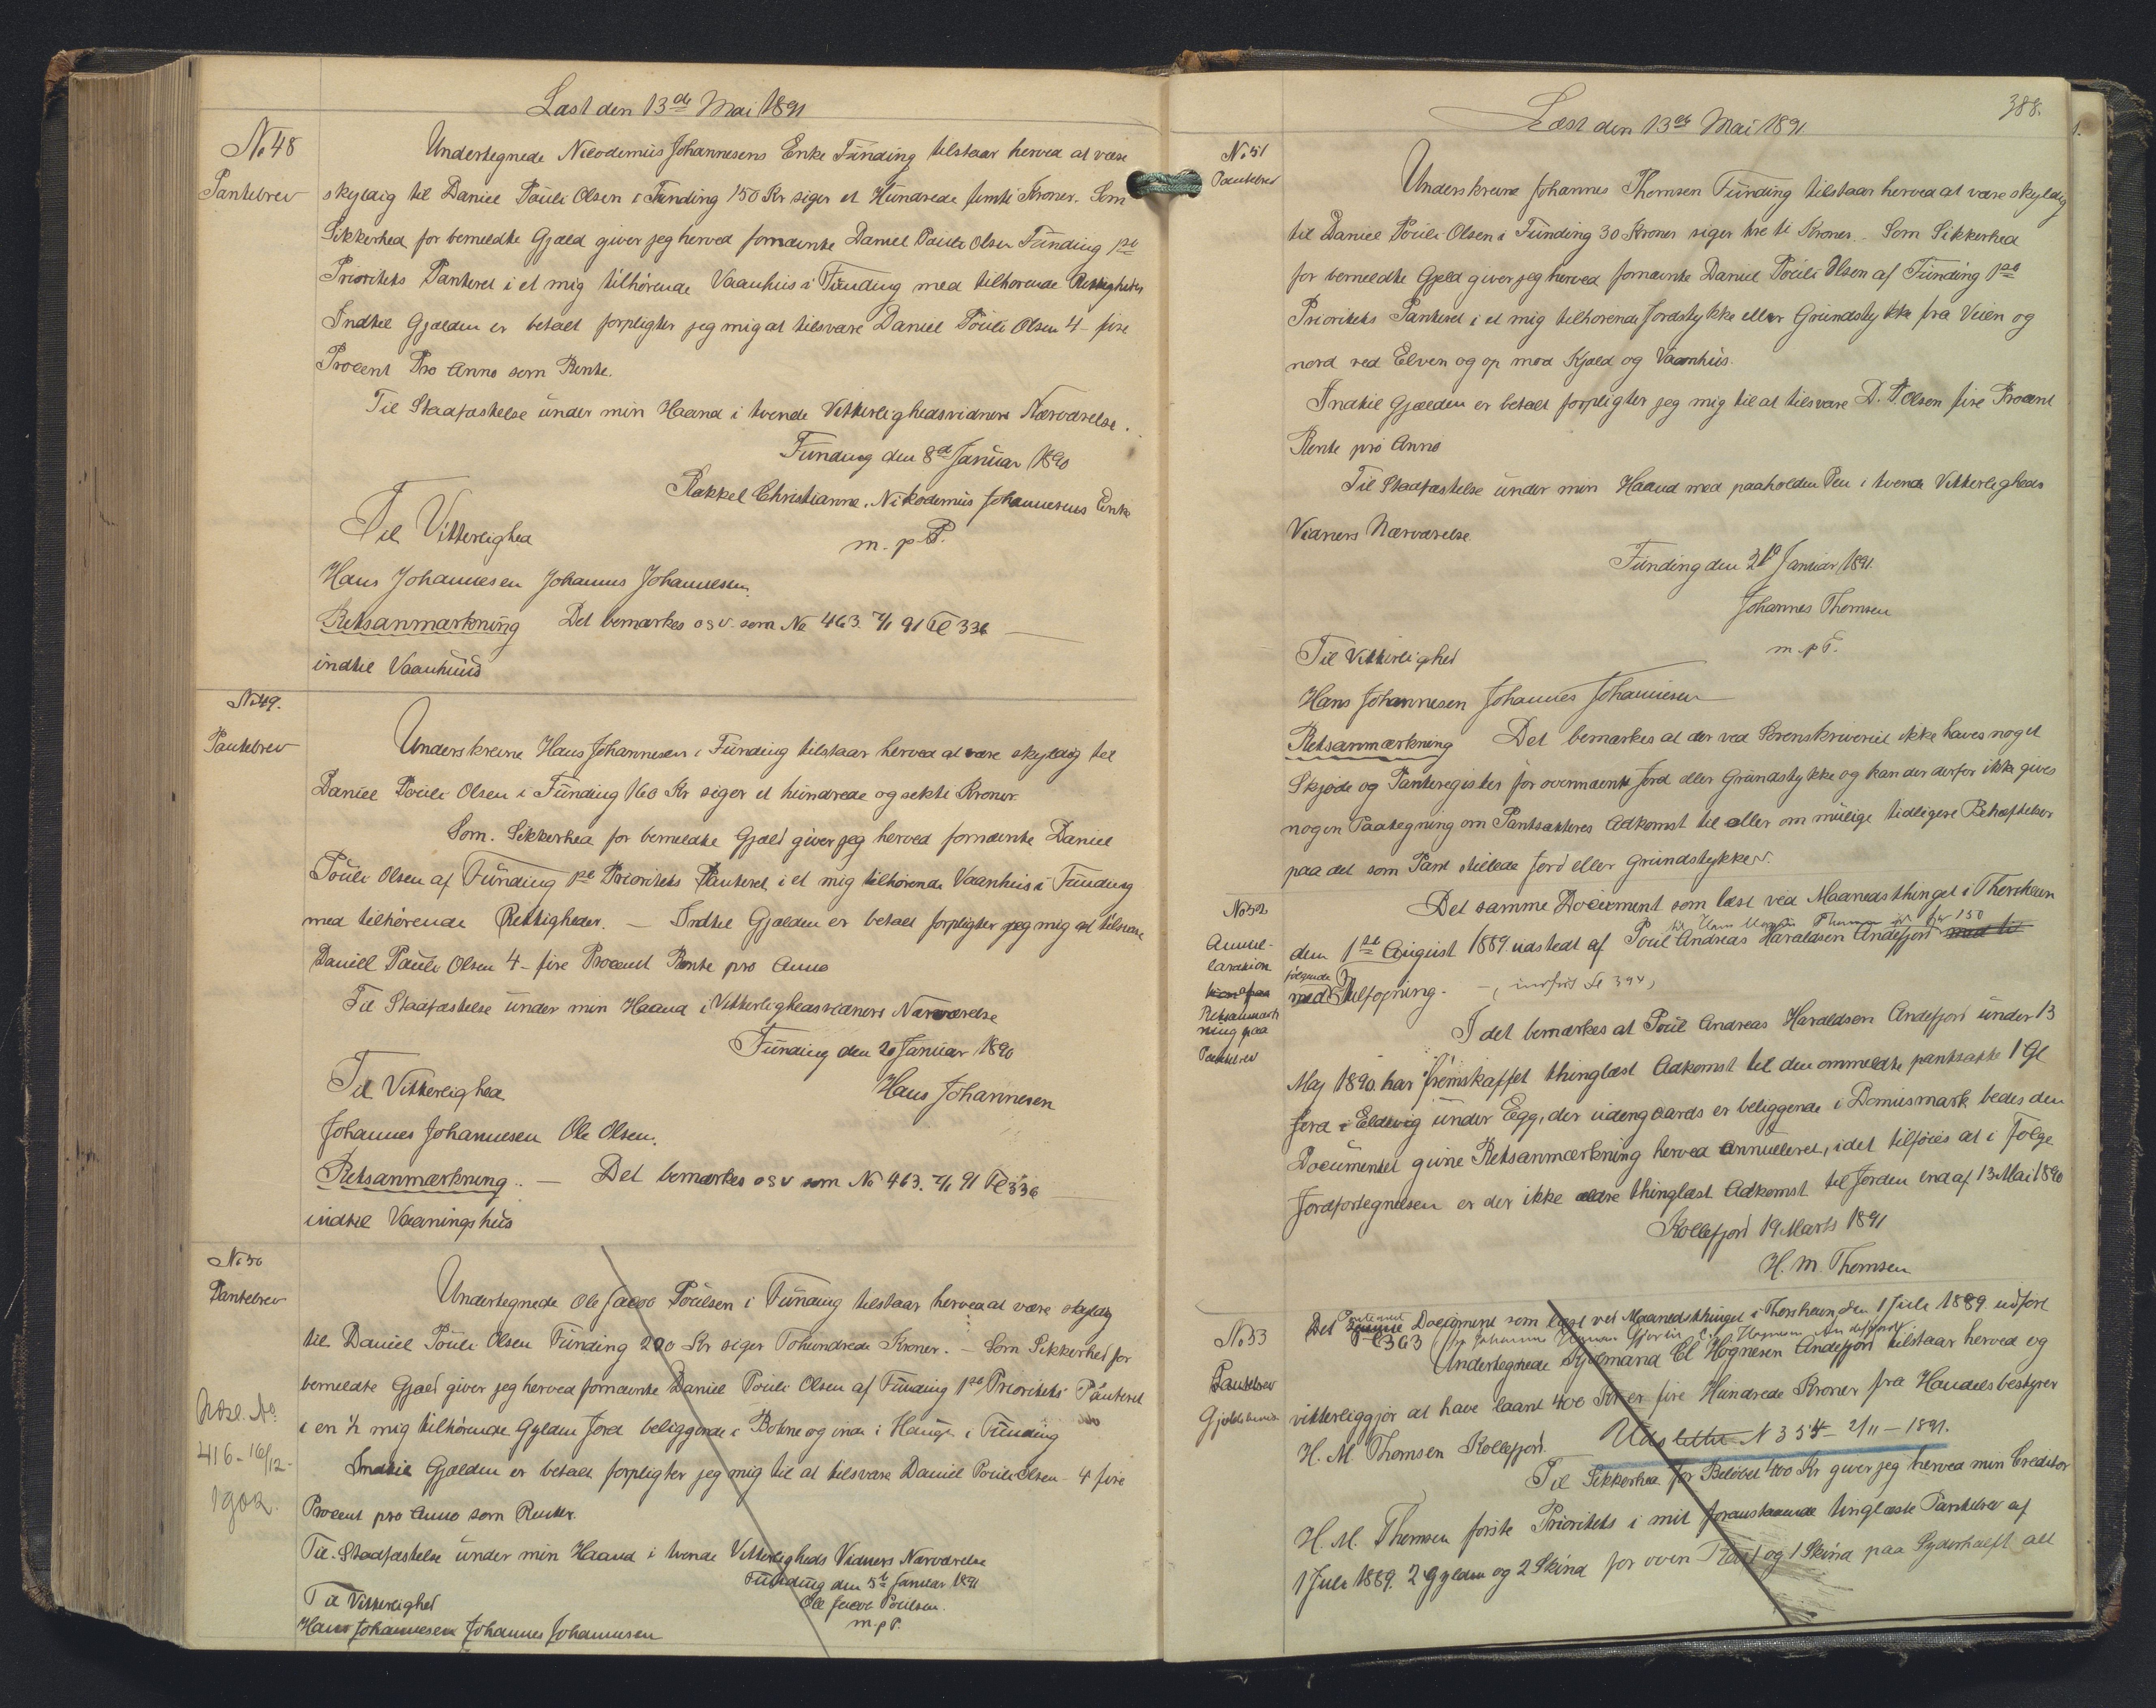 Læst den 13de Mai 1891
No 48
Pantebrev
Undertegnede Nicodemus Johannesens Enke Funding tilstaar herved at være
skyldig til Daniel Pouli Olsen i Funding 150 Kr siger et Hundrede femti Kroner. Som
Sikkerhed for bemeldte Gjæld giver jeg herved fornævnte Daniel Pouli Olsen Funding 1ste
Prioritets Panteret i et mig tilhørende Vaanhus i Funding med tilhørende Rettigheder
Indtil Gjælden er betalt forpligter jeg mig at tilsvare Daniel Pouli Olsen 4 - fire
Procent Pro Anno som Rente.
Til Stadfæstelse under min Haand i tvende Vitterlighedsvidners Nærværelse.
Funding den 8d Januar 1890
Rakkel Christianne. Nikodemus Johannesens Enke
m. p. P.
Til Vitterlighed
Hans Johannesen Johannes Johannesen.
Retsanmærkning Det bemærkes osv. som No 463. 7/1 91 Fl 336
indtil Vaanhuus
No 49.
Pantebrev
Underskrevne Hans Johannesen i Funding tilstaar herved at være skyldig til
Daniel Pouli Olsen i Funding 160 Kr siger et hundrede og sekti Kroner.
Som. Sikkerhed for bemeldte Gjæld giver jeg herved fornævnte Daniel
Pouli Olsen af Funding 1ste Prioritets Panteret i et mig tilhørende Vaanhus i Funding
med tilhørende Rettigheder. — Indtil Gjælden er betalt forpligter jeg mig at tilsvare
Daniel Pauli Olsen 4 - fire Procent Rente pro Anno
Til Stadfæstelse under min Haand i Vitterlighedsvidners Nærværelse
Funding den 20 Januar 1890
Til Vitterlighed
Hans Johannesen
Johannes Johannesen Ole Olsen.
Retsanmærkning.. — Det bemærkes osv som No 463. 7/1 91 Fl 336
indtil Vaaningshus
No 50
Pantebrev
Undertegnede Ole Jacob Poulsen i Funding tilstaar herved at være skyldig
til Daniel Pouli Olsen Funding 200 Kr siger Tohundrede Kroner. — Som Sikkerhed for
bemeldte Gjæld giver jeg herved fornævnte Daniel Pouli Olsen af Funding 1ste Prioritets Panteret
i en ½ mig tilhørende Gylden Jord beliggende i Bøtne og inde i Hauge i Funding
Indtil Gjælden er betalt forpligter jeg mig til at tilsvare Daniel Pouli Olsen - 4 fire
416 - 16/12 -
1902.
Procent pro Anno som Renter.
Til Stadfæstelse under min Haand i tvende Vitterligheds Vidners Nærværelse
Funding den 5te Januar 1891
Til Vitterlighed
Ole Jacob Poulsen.
Hans Johannesen Johannes Johannesen
m. p. P.
388.
Læst den 13de Mai 1891
No 51
Pantebrev
Underskrevne Johannes Thomsen Funding tilstaar herved at være skyldig
til Daniel Pouli Olsen i Funding 30 Kroner siger treti Kroner. - Som Sikkerhed
for bemeldte Gjæld giver jeg herved fornævnte Daniel Pouli Olsen af Funding 1ste
Prioritets Panteret i et mig tilhørende Jordstykke eller Grundstykke fra Veien og
nord ved Elven og op mod Kjæld og Vaanhus.
Indtil Gjælden er betalt forpligter jeg mig til at tilsvare D. P. Olsen fire Procent
Rente pro Anno
Til Stadfæstelse under min Haand med paaholden Pen i tvende Vitterligheds
Vidners Nærværelse.
Funding den 21 Januar 1891.
Johannes Thomsen
Til Vitterlighed
m. p. P.
Hans Johannesen Johannes Johannesen
Retsanmærkning Det bemærkes at der ved Sorenskriveriet ikke haves noget
Skjøde og Panteregister for ovennævnte Jord eller Grundstykke og kan der derfor ikke gives
nogen Paategning om Pantsætteres Adkomst til eller om mulige tidligere Behæftelser
paa det som Pant stillede Jord eller Grundstykker.
No 52
Annul-
laration
Retsanmærk
ning paa
Pantebrev
Det samme Document som læst ved Maanedsthinget i Thorshavn
den 1ste August 1889 udstedt af Poul Andreas Haraldsen Andefjord
følgende
med Tilføjning.
I det bemærkes at Poul Andreas Haraldsen Andefjord under 13
Maj 1890 har fremskaffet thinglæst Adkomst til den ommeldte pantsatte 1 Gl
Jord i Eldevig under Egg, der udengaards er beliggende i Domusmark bedes den
Documentet givne Retsanmærkning herved annulleret, idet tilføies at i Følge
Jordfortegnelsen er der ikke ældre thinglæst Adkomst til Jorden end af 13 Mai 1890
Kollefjord 19 Marts 1891
H. M. Thomsen
No 53
Pantebrev
Gjeldsbevis
Det Document som læst ved Maanedsthinget i Thorshavn den 1 Juli 1889 udført
Fl 363
Undertegnede Sysselmand Hognesen Andefjord tilstaar herved og
vitterliggjør at have laant 400 Kr er fire Hundrede Kroner fra Handelsbestyrer
H. M. Thomsen Kollefjord.
Udslettet N 354 - 2/11 - 1891.
Til Sikkerhed for Beløbet 400 Kr giver jeg herved min Creditor
H. M. Thomsen første Prioritets i mit foranstaaende tinglæste Pantebrev af
1 Juli 1889. 2 Gylden og 2 Skind for oven og 1 Skind paa Syderhalft alt